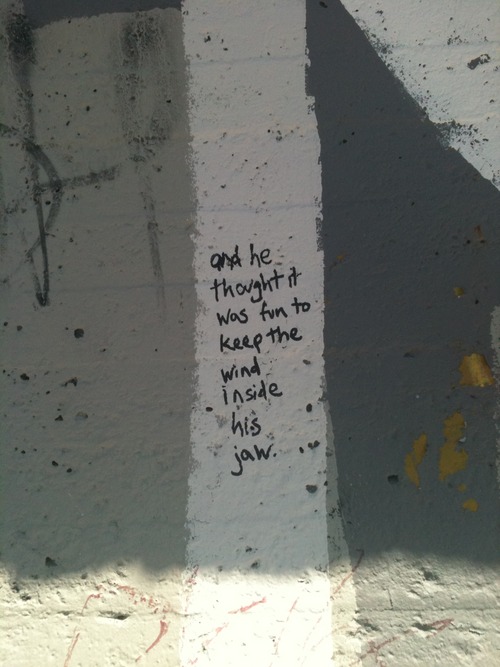 and he
thought it
was fun to
keep the
wind
inside
his
jaw...